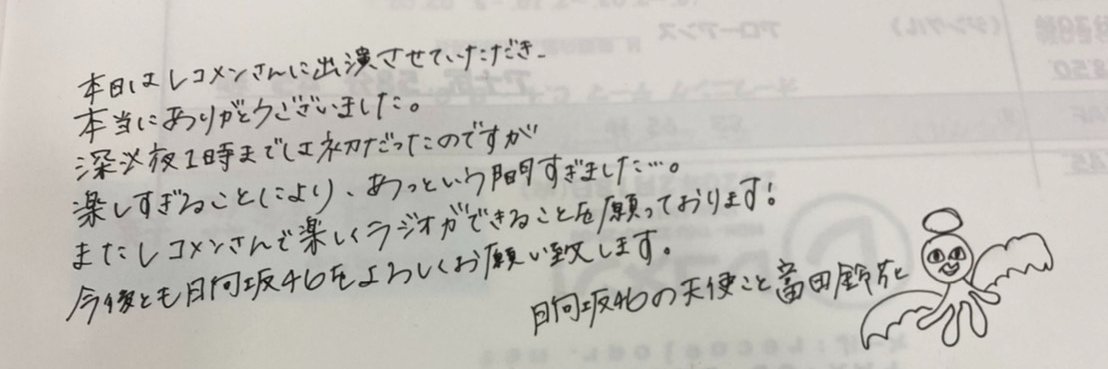 本日はレコメンさんに出演させていただき、
本当にありがとうございました。
深夜1時までは初だったのですが
楽しすぎることにより、あっという間すぎました…。
またレコメンさんで楽しくラジオができることを願っております!
今後とも日向坂46をよろしくお願い致します。
日向坂46の天使こと富田鈴花と